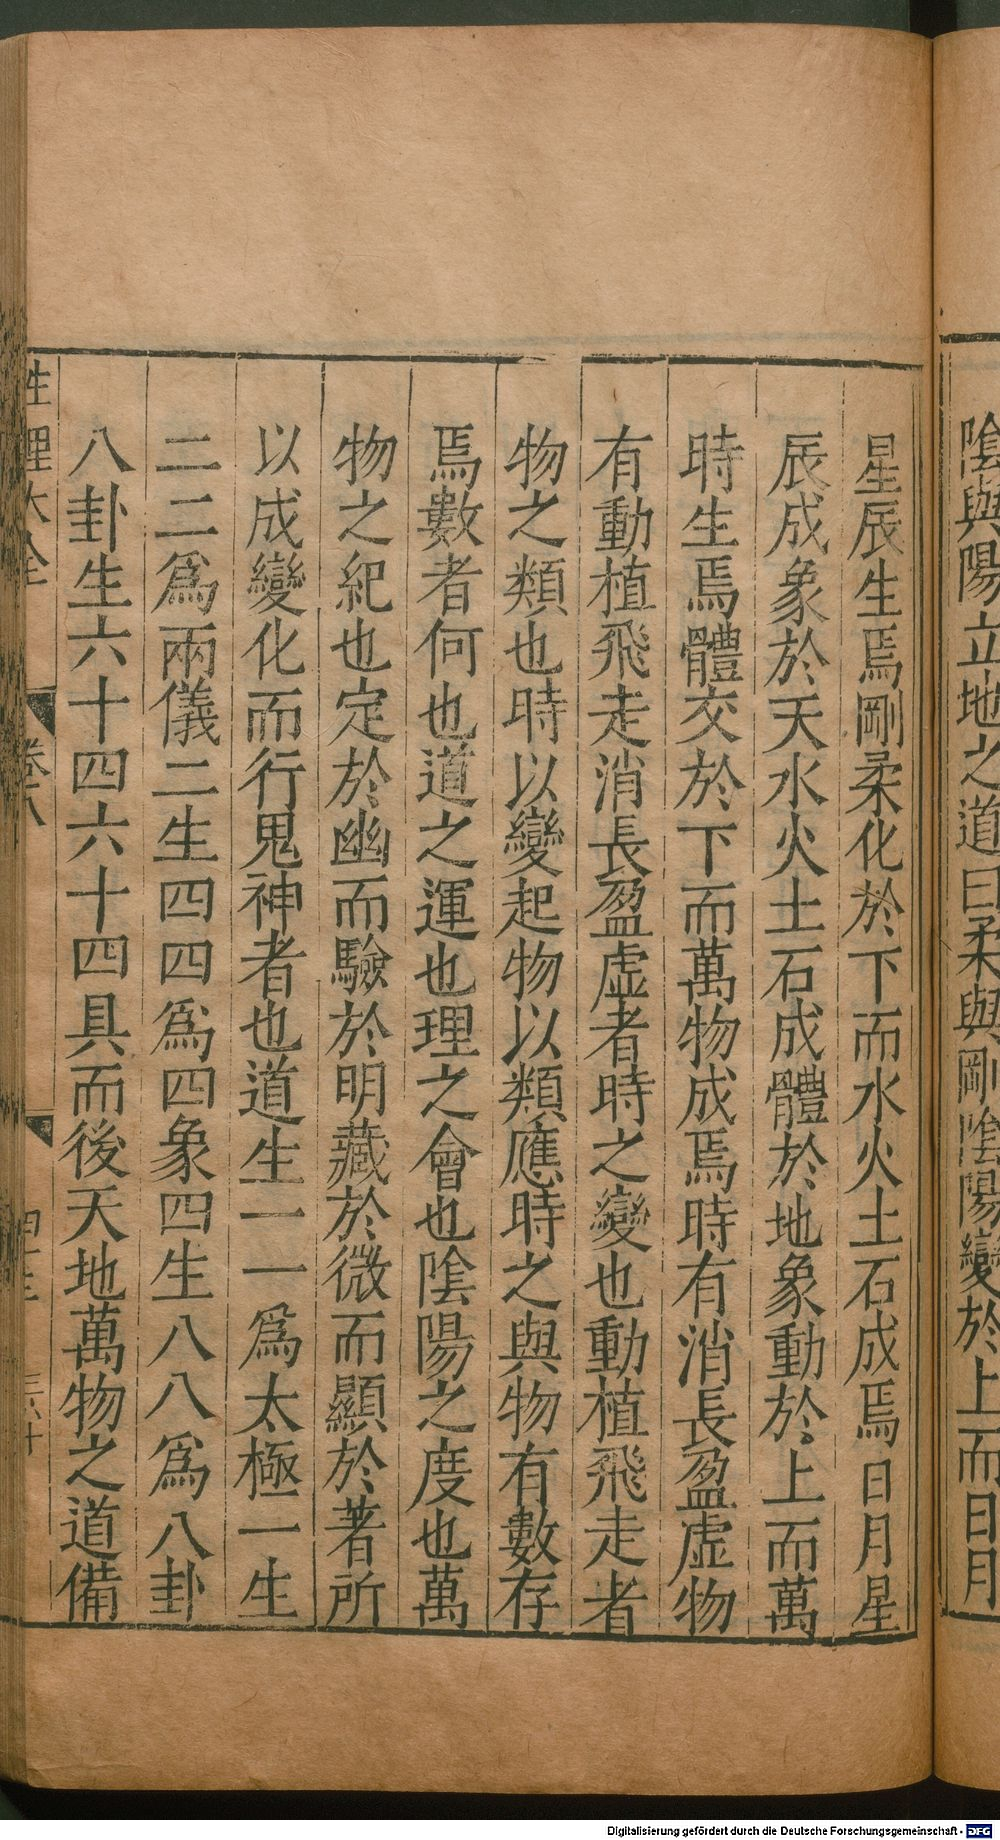 陰與陽立地之道曰柔與剛陰陽變於上而日月
星辰生焉剛柔化於下而水火土石成焉日月星
辰成象於天水火土石成體於地象動於上而萬
時生焉體交於下而萬物成焉時有消長盈虛物
有動植飛走消長盈虛者時之變也動植飛走者
物之類也時以變起物以類應時之與物有數存
焉數者何也道之運也理之會也陰陽之度也萬
物之紀也定於幽而驗於明藏於微而顯於著所
以成變化而行鬼神者也道生一一為太極一生
二二為兩儀二生四四為四象四生八八為八卦
八卦生六十四六十四具而後天地萬物之道備
性理大全
卷八
Digitalisierung gefördert durch die Deutsche Forschungsgemeinschaft - DFG